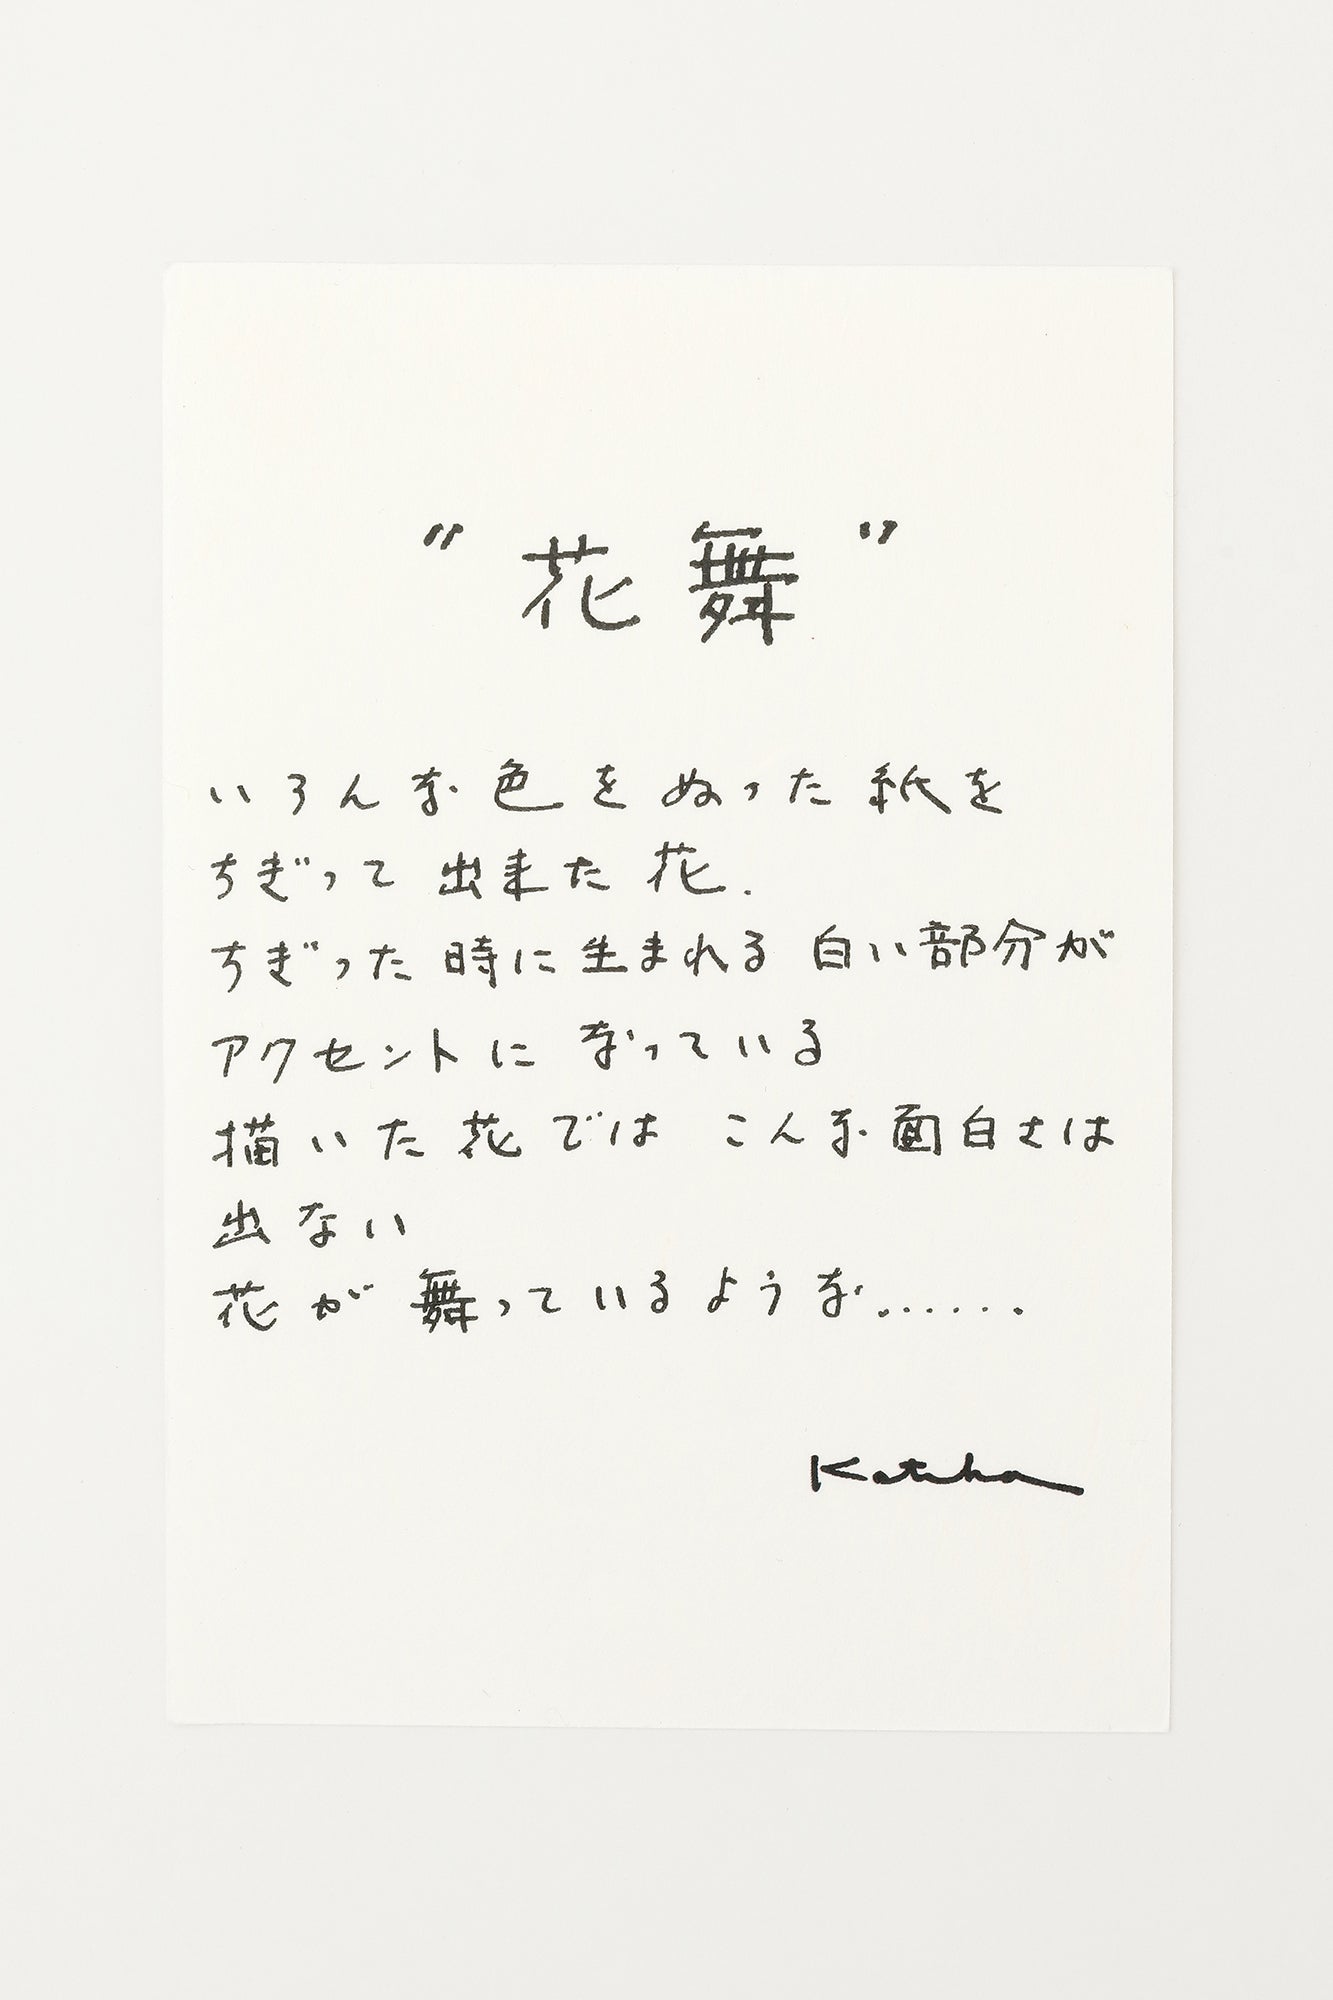 "花舞"
いろんな色をぬった紙を
ちぎって出来た花.
ちぎった時に生まれる白い部分が
アクセントになっている
描いた花ではこんな面白さは
出ない
花が舞っているような.......